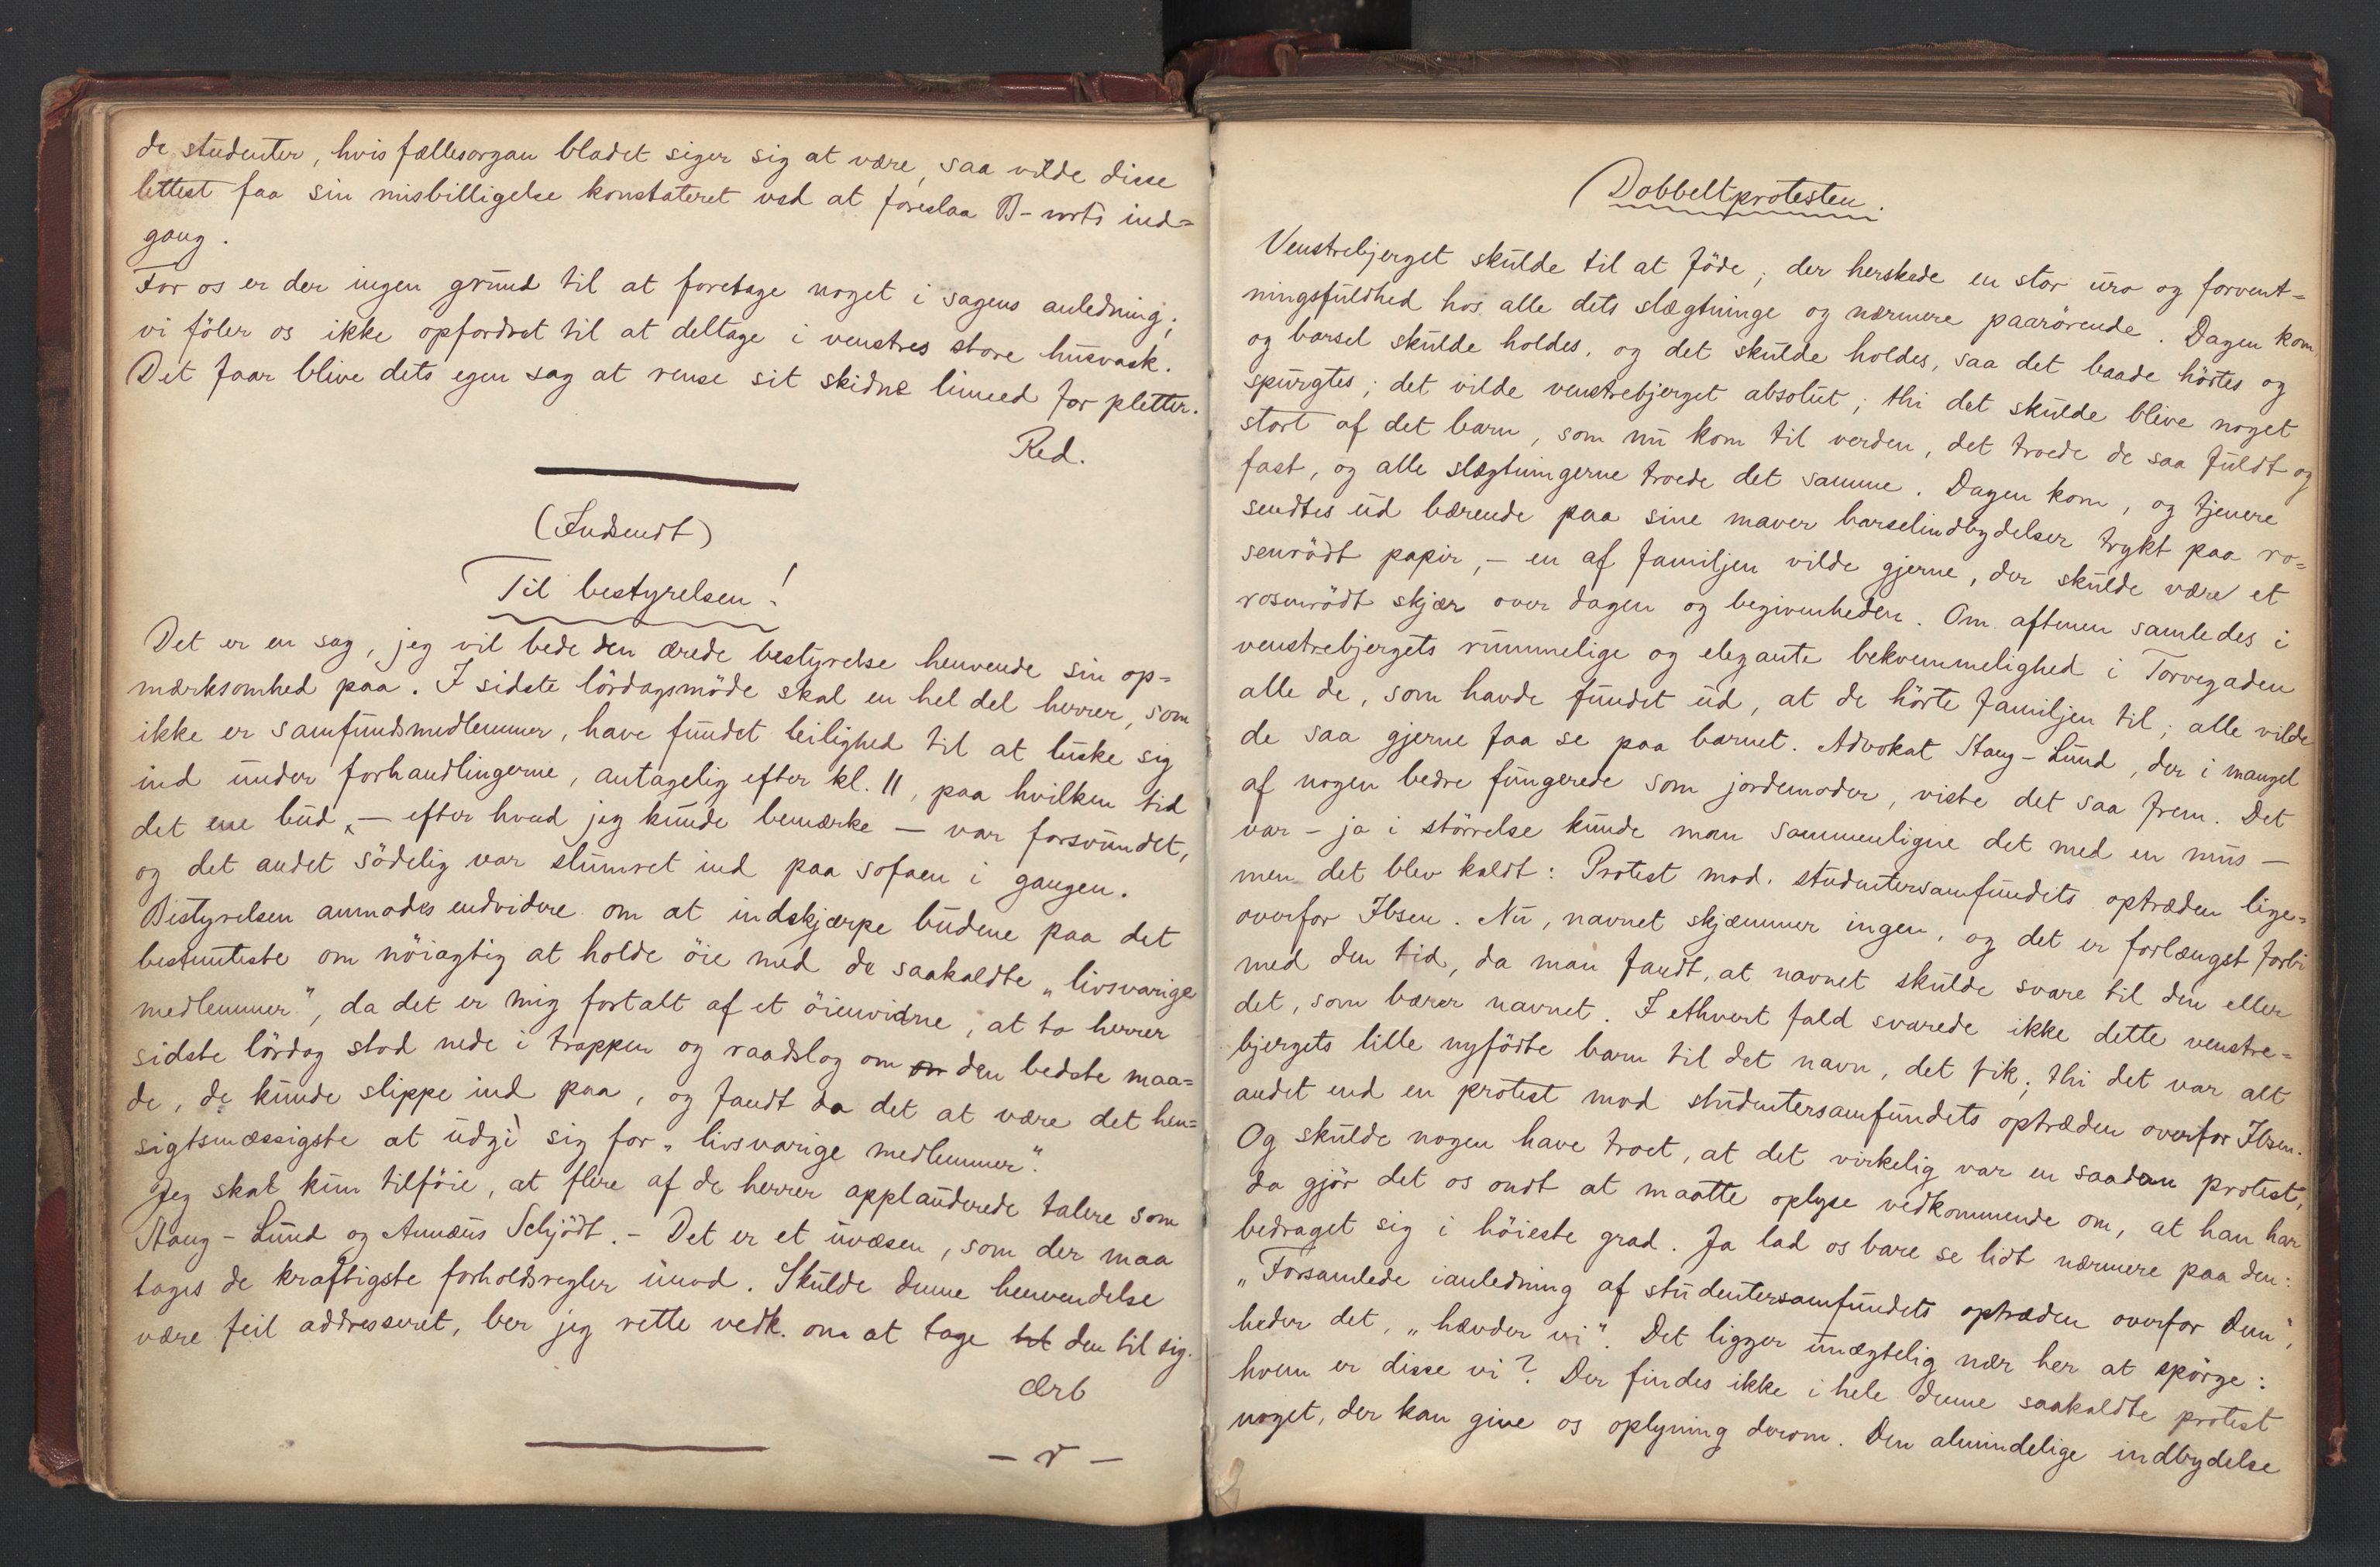 de studenter, hvis fællesorgan bladet siger sig at være, saa vilde disse
lettest faa sin misbilligelse konstateret ved at foreslaa B- ind=
gang.
For os er der ingen grund til at foretage noget i sagens anledning;
vi föler os ikke opfordret til at deltage i venstres store husvask.
Det faar blive dets egen sag at rense sit skidne linned for pletter.
Red.
(Indsendt)
Til bestyrelsen!
Det er en sag, jeg vil bede den ærede bestyrelse henvende sin op=
mærksomhed paa. I sidste lördagsmöde skal en hel del herrer, som
ikke er samfundsmedlemmer, have fundet leilighed til at luske sig
ind under forhandlingerne, antagelig efter kl. 11, paa hvilken tid
det ene bud, — efter hvad jeg kunde bemærke — var forsvundet,
og det andet södelig var slumret ind paa sofaen i gangen.
Bestyrelsen anmodes endvidere om at indskjærpe budene paa det
bestemteste om nöiagtig at holde öie med de saakaldte „livsvarige
medlemmer", da det er mig fortalt af et öienvidne, at to herrer
sidste lördag stod nede i trappen og raadslog om om den bedste maa=
de, de kunde slippe ind paa, og fandt da det at være det hen=
sigtsmæssigste at udgi sig for „livsvarige medlemmer".
Jeg skal kun tilföie, at flere af de herrer applauderede talere som
Stang-Lund og Annæus Schjödt. — Det er et uvæsen, som der maa
tages de kraftigste forholdsregler imod. Skulde denne henvendelse
være feil addresseret, ber jeg rette vedk. om at tage den til sig.
Ærb
— r —
Dobbeltprotesten.
Venstrebjerget skulde til at föde; der herskede en stor uro og forvent=
ningsfuldhed hos alle dets slægtninge og nærmere paarörende. Dagen kom,
og barsel skulde holdes, og det skulde holdes, saa det baade hörtes og
spurgtes; det vilde venstrebjerget absolut; thi det skulde blive noget
stort af det barn, som nu kom til verden, det troede de saa fuldt og
fast, og alle slægtningerne troede det samme. Dagen kom, og tjenere
sendtes ud bærende paa sine maver barselindbydelser trykt paa ro=
senrödt papir, — en af familjen vilde gjerne, der skulde være et
rosenrödt skjær over dagen og begivenheden. Om aftenen samledes i
venstrebjergets rummelige og elegante bekvemmelighed i Torvegaden
alle de, som havde fundet ud, at de hörte familjen til; alle vilde
de saa gjerne faa se paa barnet. Advokat Stang-Lund, der i mangel
af nogen bedre fungerede som jordemoder, viste det saa frem. Det
var — ja i störrelse kunde man sammenligne det med en mus —
men det blev kaldt: Protest mod studentersamfundets optræden lige=
overfor Ibsen. Nu, navnet skjæmmer ingen, og det er forlængst forbi
med den tid, da man fandt, at navnet skulde svare til den eller
det, som bærer navnet. I ethvert fald svarede ikke dette venstre=
bjergets lille nyfödte barn til det navn, det fik; thi det var alt
andet end en protest mod studentersamfundets optræden overfor Ibsen.
Og skulde nogen have troet, at det virkelig var en saadan protest,
da gjör det os ondt at maatte oplyse vedkommende om, at han har
bedraget sig i höieste grad. Ja lad os bare se lidt nærmere paa den:
„Forsamlede ianledning af studentersamfundets optræden overfor Dem",
heder det, „hævder vi". Det ligger unægtelig nær her at spörge:
hvem er disse vi? Der findes ikke i hele denne saakaldte protest
noget, der kan give os oplysning derom. Den almindelige indbydelse